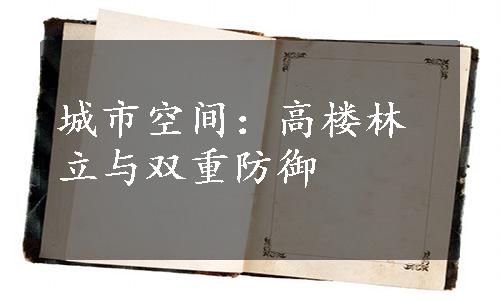 城市空间：高楼林
立与双重防御